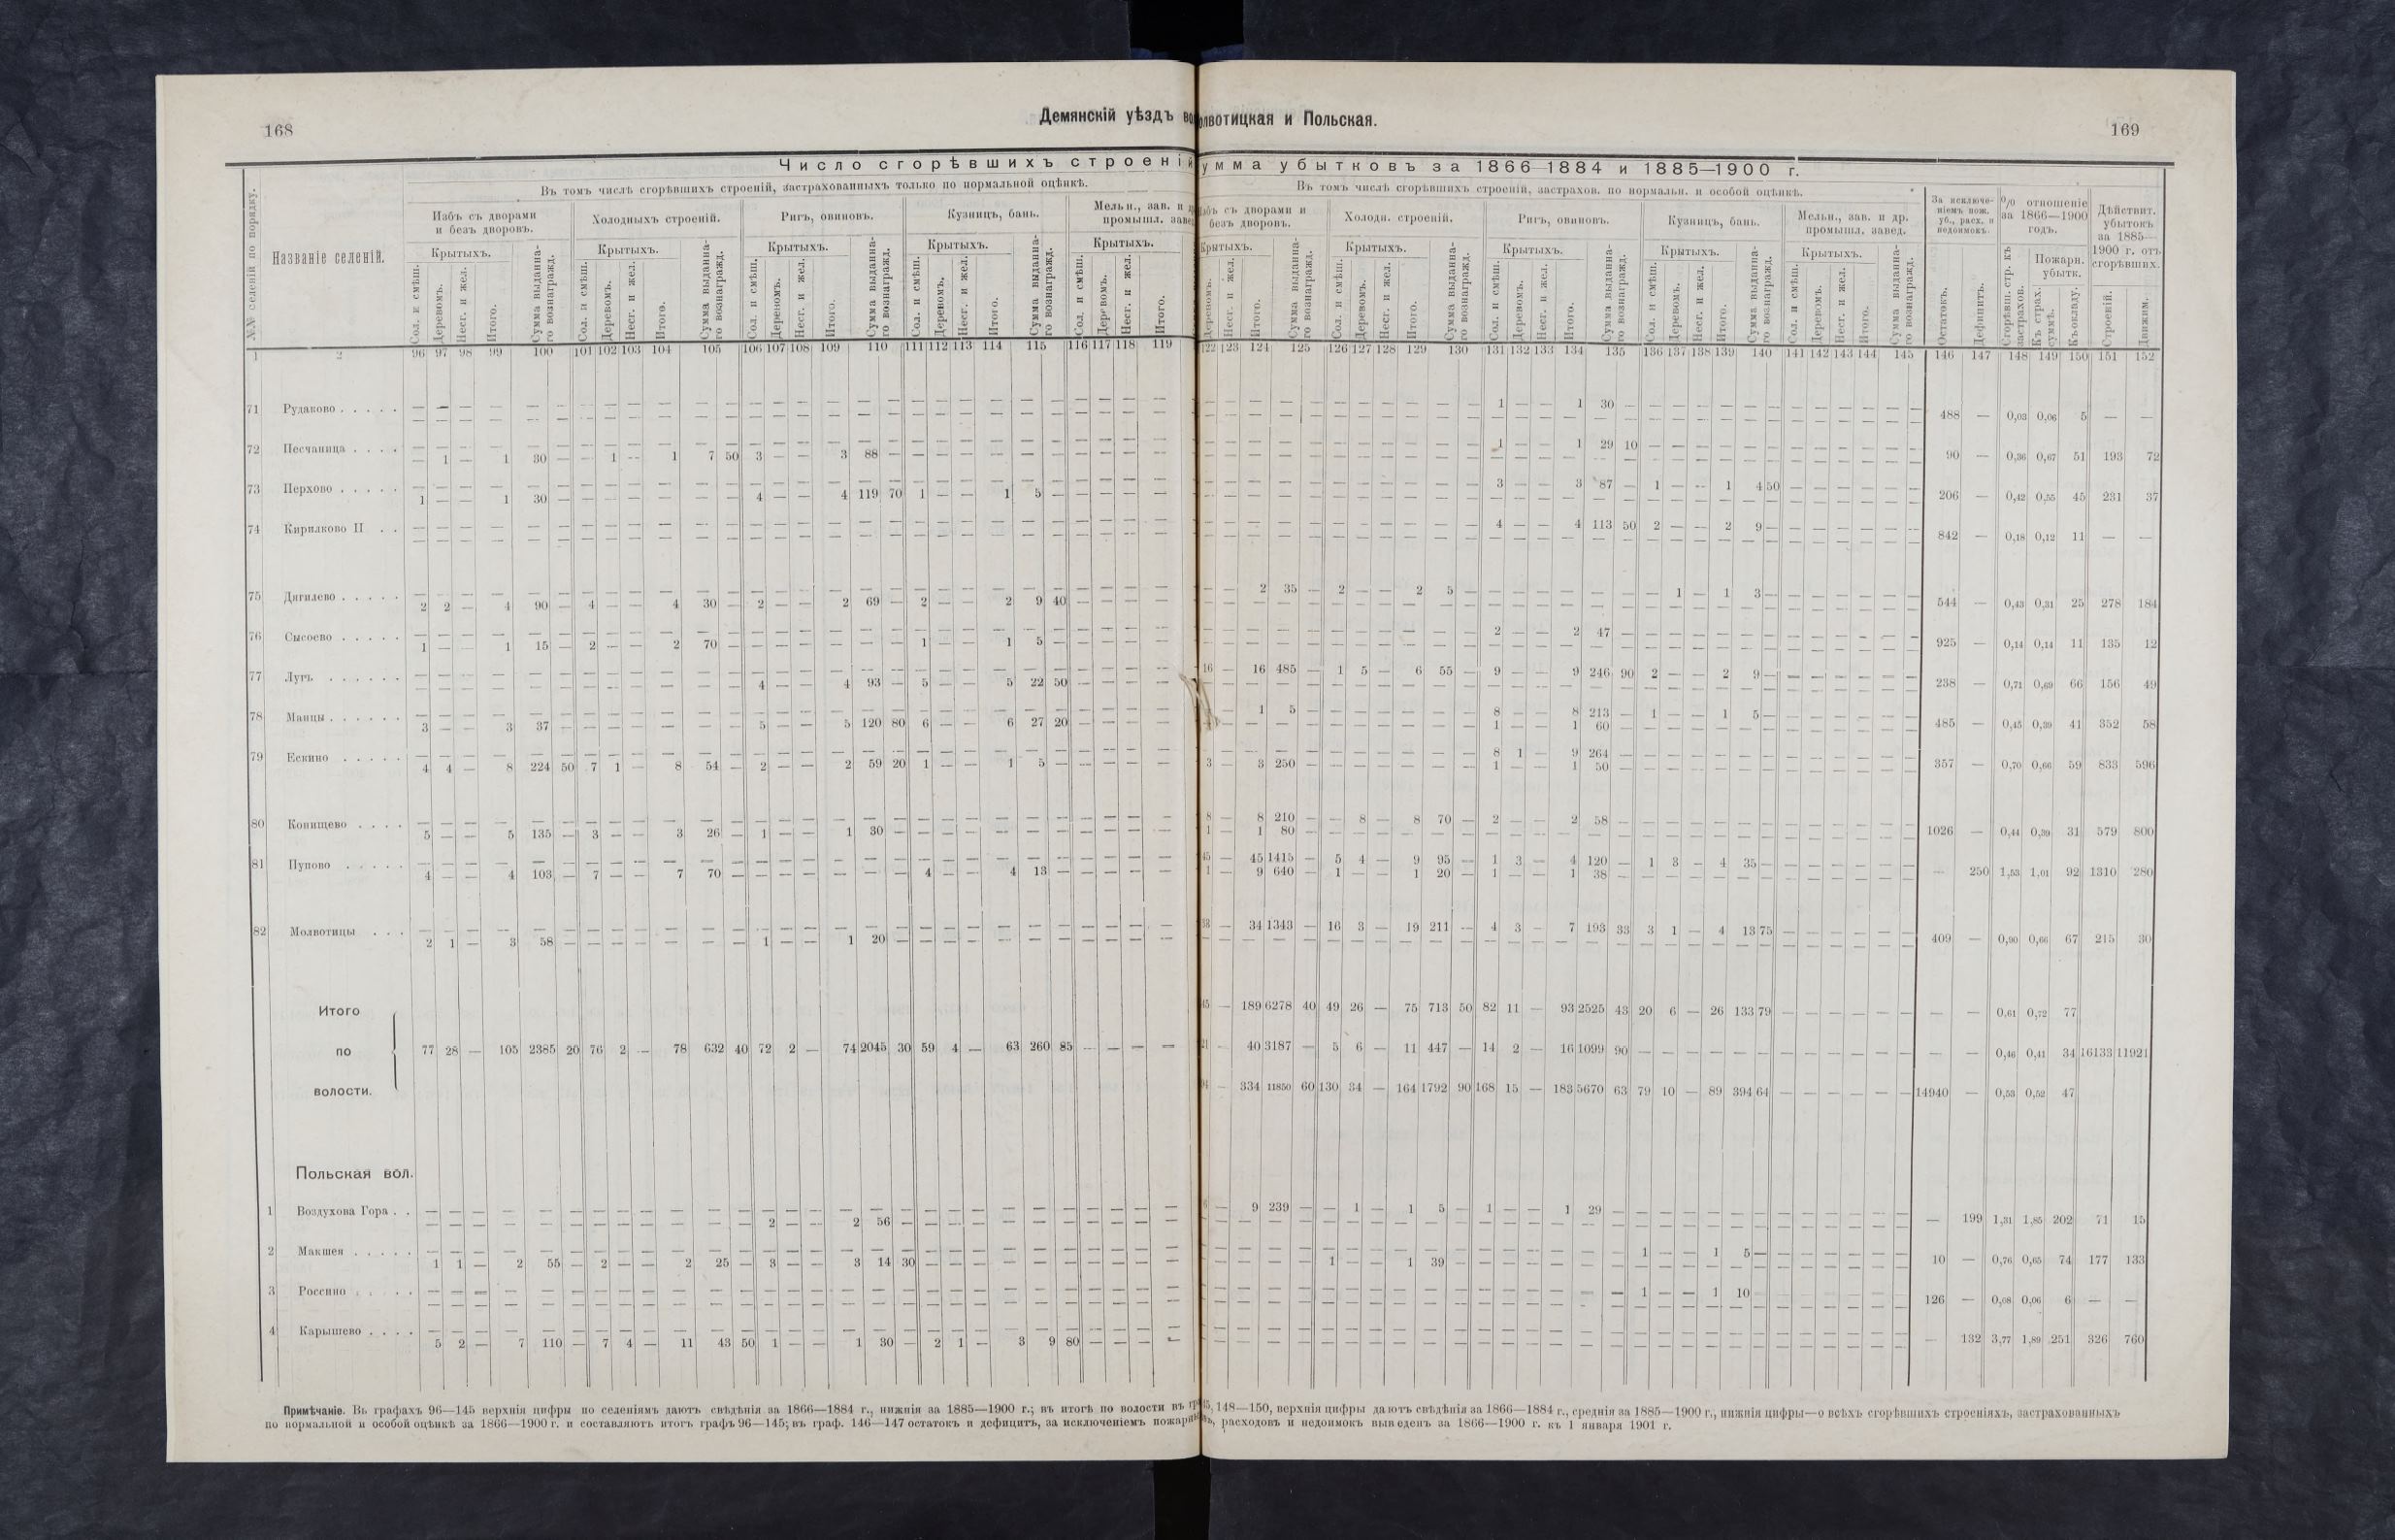 168
Демянскій уѣздъ во
олвотицкая и Польская.
169
Число сгорѣвшихъ строеній
умма убытковъ за 1866—1884 и 1885—1900 г.
№№ селеній по порядку.
Названіе селеній.
Въ томъ числѣ сгорѣвшихъ строеній, застрахованныхъ только по нормальной оцѣнкѣ.
Въ томъ числѣ сгорѣвшихъ строеній, застрахов. по нормальн. и особой оцѣнкѣ.
Избъ съ дворами и безъ дворовъ. Холодныхъ строеній. Ригъ, овиновъ. Кузницъ, бань. Мельн., зав. и промышл. заве
съ дворами и безъ дворовъ. Холодн. строеній. Ригъ, овиновъ. Кузницъ, бань. Мельн., зав. и др. промышл. завед.
За исключеніемъ пож. уб., расх. и недоимокъ. % отношеніе за 1866—1900 годъ. Дѣйствит. убытокъ за 1885—1900 г. отъ сгорѣвшихъ.
Крытыхъ. Крытыхъ. Крытыхъ. Крытыхъ. Крытыхъ. Крытыхъ. Крытыхъ. Крытыхъ. Крытыхъ. Крытыхъ. Пожарн. убытк.
Сол. и смѣш. Деревомъ. Несг. и жел. Итого. Сумма выданнаго вознагражд. Сол. и смѣш. Деревомъ. Несг. и жел. Итого. Сумма выданнаго вознагражд. Сол. и смѣш. Деревомъ. Несг. и жел. Итого. Сумма выданнаго вознагражд. Сол. и смѣш. Деревомъ. Несг. и жел. Итого. Сумма выданнаго вознагражд. Сол. и смѣш. Деревомъ. Несг. и жел. Итого.
Деревомъ. Несг. и жел. Итого. Сумма выданнаго вознагражд. Сол. и смѣш. Деревомъ. Несг. и жел. Итого. Сумма выданнаго вознагражд. Сол. и смѣш. Деревомъ. Несг. и жел. Итого. Сумма выданнаго вознагражд. Сол. и смѣш. Деревомъ. Несг. и жел. Итого. Сумма выданнаго вознагражд. Сол. и смѣш. Деревомъ. Несг. и жел. Итого. Сумма выданнаго вознагражд. Остатокъ. Дефицитъ. Сгорѣвш. стр. къ застрахов. Къ страх. суммѣ. Къ окладу. Строеній. Движим.
1 2 96 97 98 99 100 101 102 103 104 105 106 107 108 109 110 111 112 113 114 115 116 117 118 119 122 123 124 125 126 127 128 129 130 131 132 133 134 135 136 137 138 139 140 141 142 143 144 145 146 147 148 149 150 151 152
71 Рудаково . . . . . 1 — — 1 30 —
488 — 0,03 0,06 5 — —
72 Песчаница . . . . 1 — — 1 29 10
— 1 — 1 30 — — 1 — 1 7 50 3 — — 3 88 — 90 — 0,36 0,67 51 193 72
73 Перхово . . . . . 3 — — 3 87 — 1 — — 1 4 50
1 — — 1 30 — 4 — — 4 119 70 1 — — 1 5 — 206 — 0,42 0,55 45 231 37
74 Кирилково II . . 4 — — 4 113 50 2 — — 2 9 —
842 — 0,18 0,12 11 — —
75 Дягилево . . . . . — — 2 35 — 2 — — 2 5 — — 1 — 1 3 —
2 2 — 4 90 — 4 — — 4 30 — 2 — — 2 69 — 2 — — 2 9 40 544 — 0,43 0,31 25 278 184
76 Сысоево . . . . . 2 — — 2 47 —
1 — — 1 15 — 2 — — 2 70 — 1 — — 1 5 — 925 — 0,14 0,14 11 135 12
77 Лугъ . . . . . . 16 — 16 485 — 1 5 — 6 55 — 9 — — 9 246 90 2 — — 2 9 —
4 — — 4 93 — 5 — — 5 22 50 238 — 0,71 0,69 66 156 49
78 Маицы . . . . . . 1 5 — 8 — — 8 213 — 1 — — 1 5 —
3 — — 3 37 — 5 — — 5 120 80 6 — — 6 27 20 1 — — 1 60 485 — 0,45 0,39 41 352 58
79 Ескино . . . . . 8 1 — 9 264 —
4 4 — 8 224 50 7 1 — 8 54 — 2 — — 2 59 20 1 — — 1 5 — 3 — 3 250 — 1 — — 1 50 — 357 — 0,70 0,66 59 833 596
80 Конищево . . . . 8 — 8 210 — — 8 — 8 70 — 2 — — 2 58 —
5 — — 5 135 — 3 — — 3 26 — 1 — — 1 30 — 1 — 1 80 — 1026 — 0,44 0,39 31 579 800
81 Пупово . . . . . 45 1415 — 5 4 — 9 95 — 1 3 — 4 120 — 1 3 — 4 35 —
4 — — 4 103 — 7 — — 7 70 — 4 — — 4 13 — 1 — 9 640 — 1 — — 1 20 — 1 — — 1 38 — — 250 1,53 1,01 92 1310 280
82 Молвотицы . . . 34 1343 — 16 3 — 19 211 — 4 3 — 7 193 33 3 1 — 4 13 75
2 1 — 3 58 — 1 — — 1 20 — 409 — 0,90 0,66 67 215 30
Итого — 189 6278 40 49 26 — 75 713 50 82 11 — 93 2525 43 20 6 — 26 133 79 — — — — — — — 0,61 0,72 77
по 77 28 — 105 2385 20 76 2 — 78 632 40 72 2 — 74 2045 30 59 4 — 63 260 85 — — — — — 40 3187 — 5 6 — 11 447 — 14 2 — 16 1099 90 — — — — — — 0,46 0,41 34 16133 11921
волости. — 334 11850 60 130 34 — 164 1792 90 168 15 — 183 5670 63 79 10 — 89 394 64 — — — — — — 14940 — 0,53 0,52 47
Польская вол.
1 Воздухова Гора . . — 9 239 — — 1 — 1 5 — 1 — — 1 29 —
2 — — 2 56 — — 199 1,31 1,85 202 71 15
2 Макшея . . . . . 1 — — 1 5 —
1 1 — 2 55 — 2 — — 2 25 — 3 — — 3 14 30 1 — 1 39 — 10 — 0,76 0,65 74 177 133
3 Россино . . . . . 1 — — 1 10
126 — 0,08 0,06 6 — —
4 Карышево . . . .
5 2 — 7 110 — 7 4 — 11 43 50 1 — — 1 30 — 2 1 — 3 9 80 — — — — — 132 3,77 1,89 251 326 760
Примѣчаніе. Въ графахъ 96—145 верхнія цифры по селеніямъ даютъ свѣдѣнія за 1866—1884 г., нижнія за 1885—1900 г.; въ итогѣ по волости въ 148—150, верхнія цифры даютъ свѣдѣнія за 1866—1884 г., среднія за 1885—1900 г., нижнія цифры—о всѣхъ сгорѣвшихъ строеніяхъ, застрахованныхъ
по нормальной и особой оцѣнкѣ за 1866—1900 г. и составляютъ итогъ графъ 96—145; въ граф. 146—147 остатокъ и дефицитъ, за исключеніемъ пожарн расходовъ и недоимокъ выведенъ за 1866—1900 г. къ 1 января 1901 г.